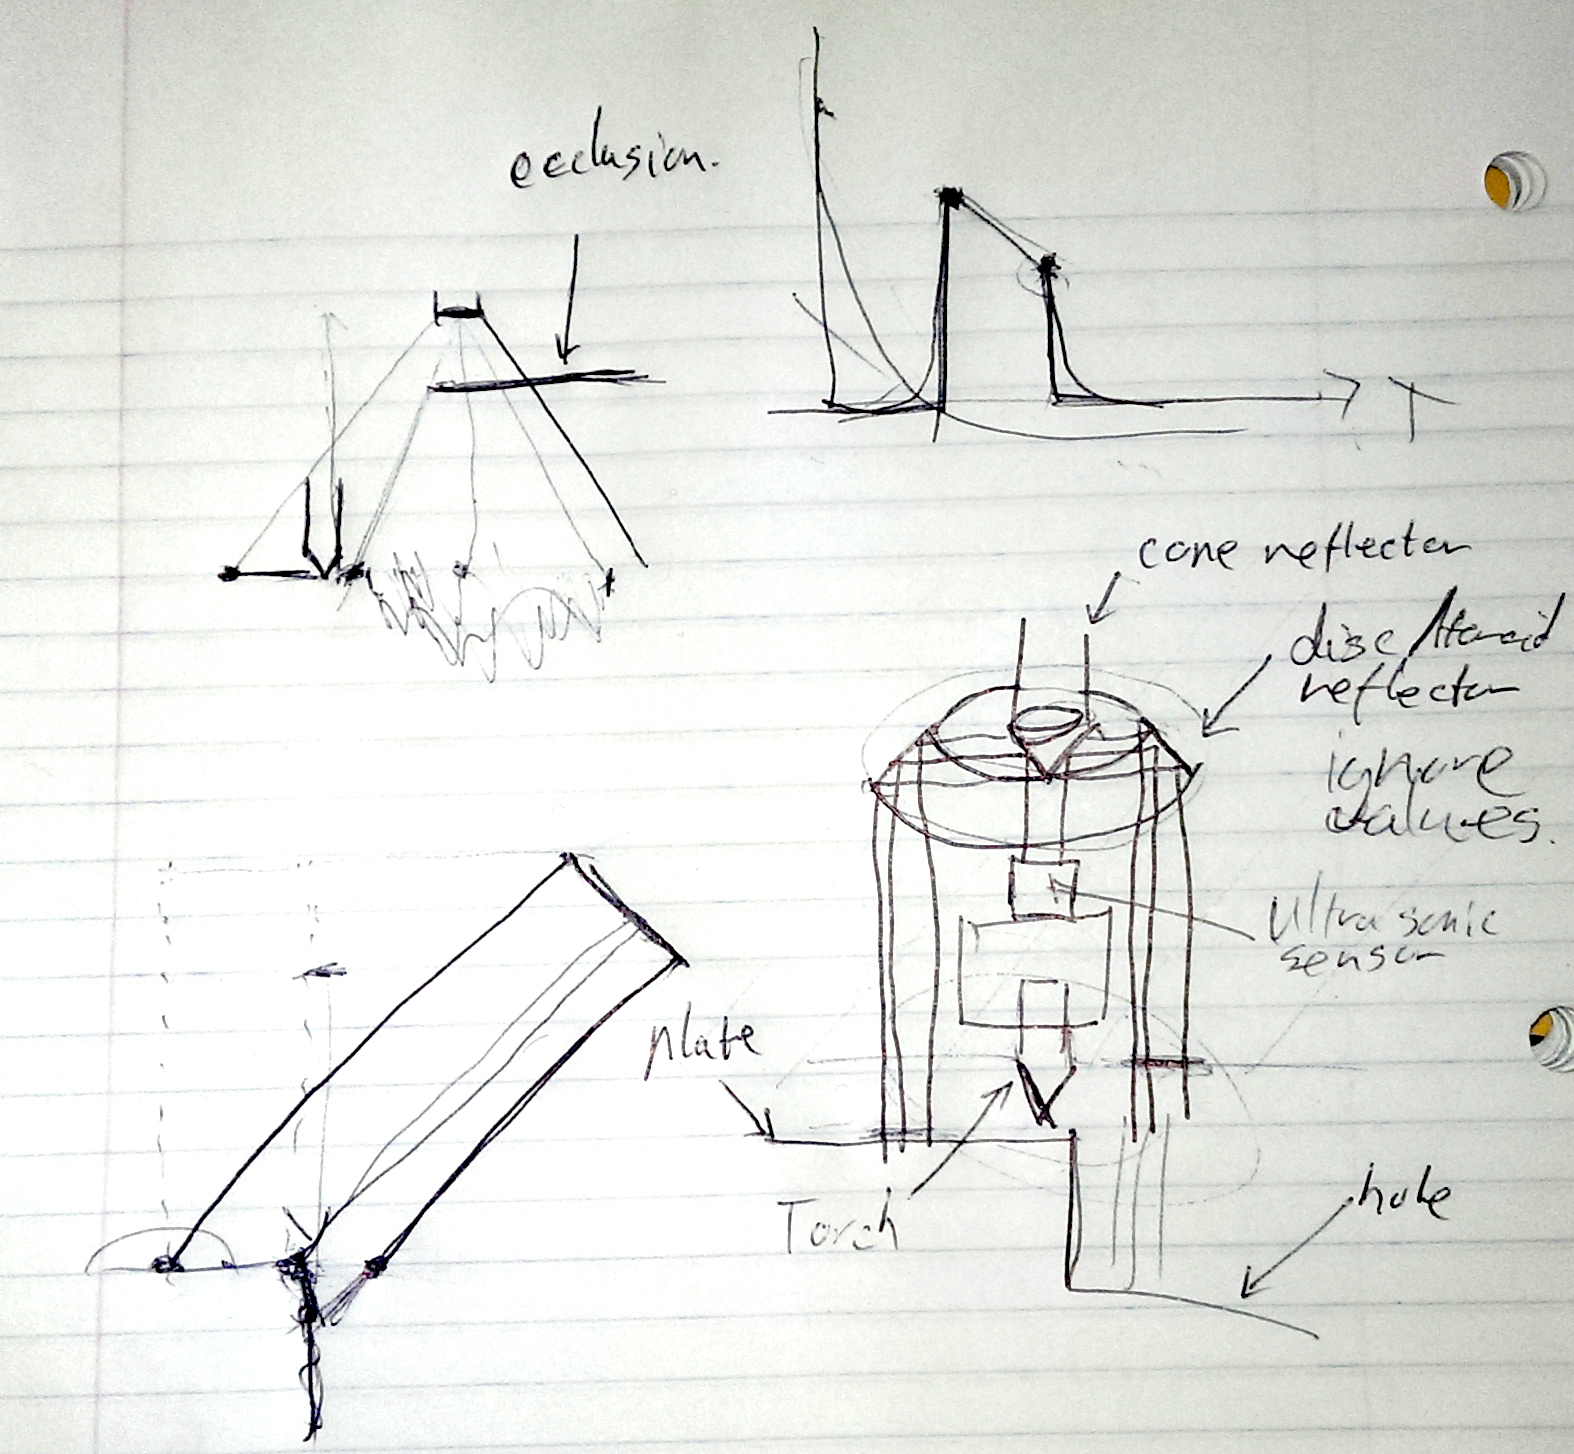 occlusion.
T
cone reflector
disc/toroid
reflector
ignore
values.
Ultrasonic
sensor
plate
Torch
hole